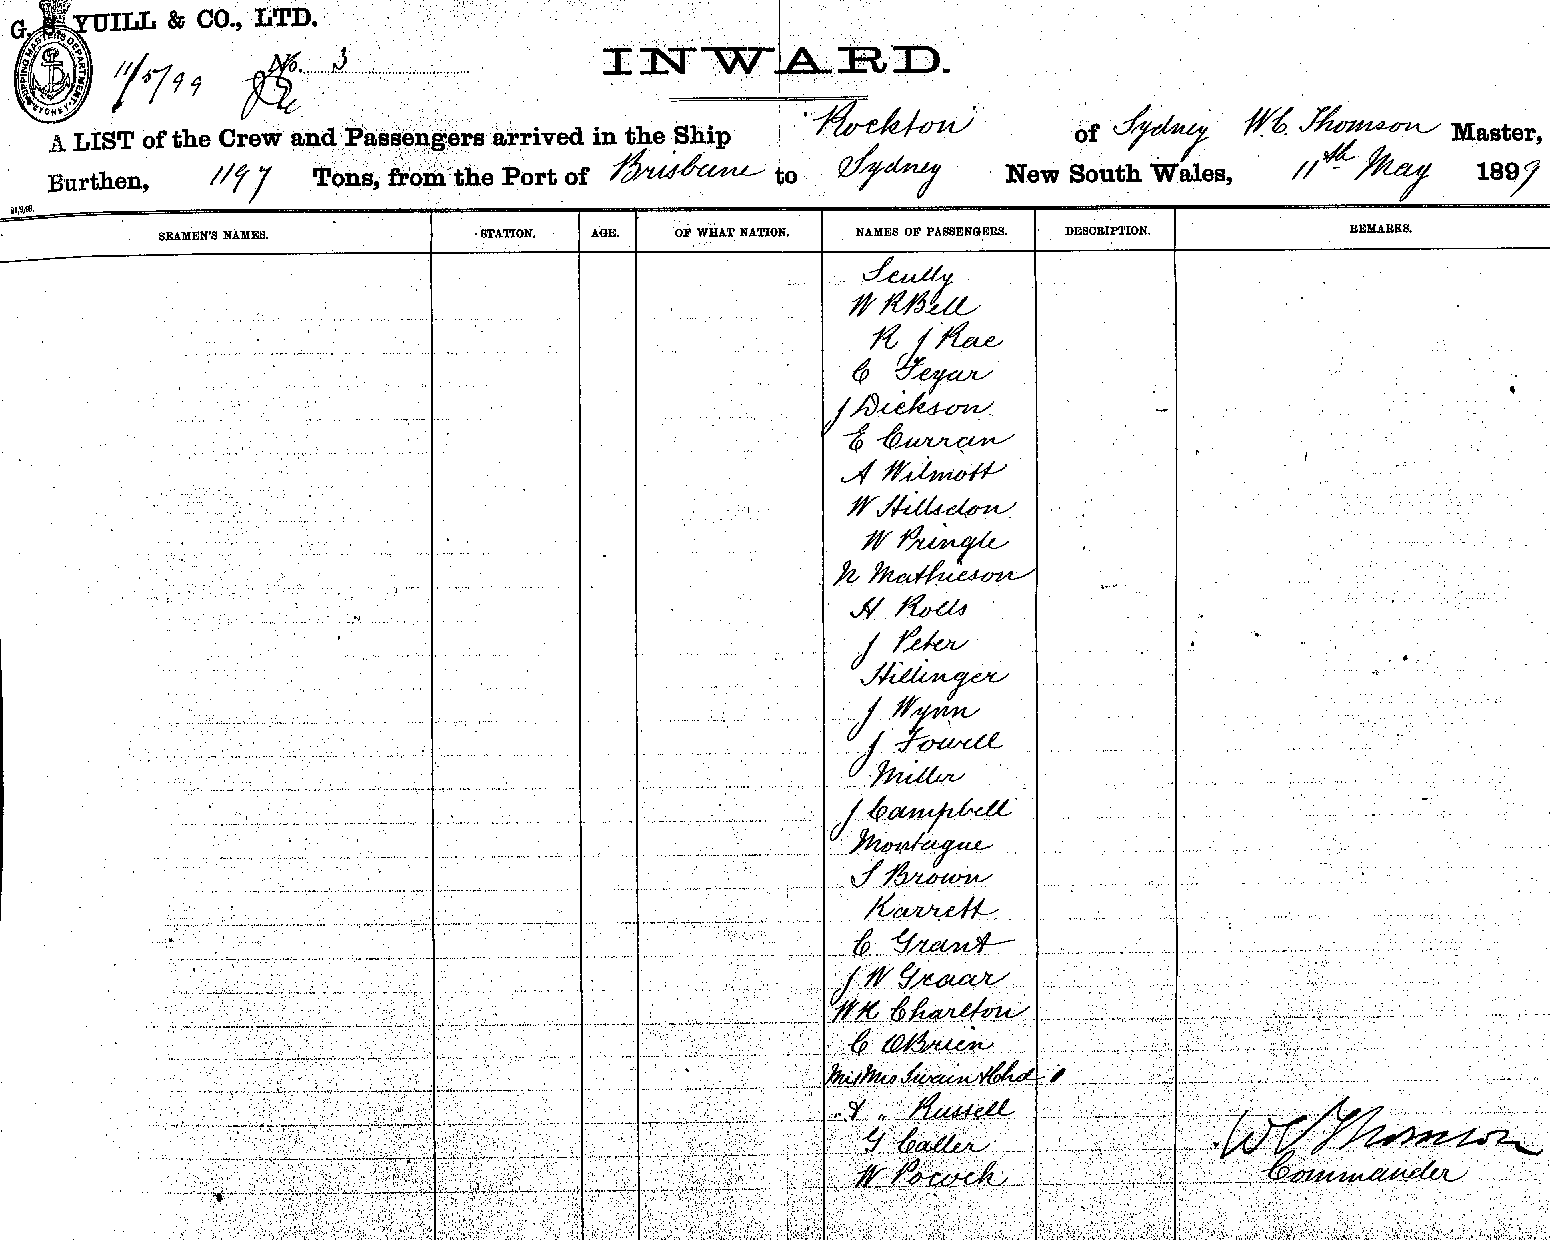 G. S. YUILL & CO., LTD.
SHIPPING MASTERS DEPARTMENT SYDNEY
11/5/99 No. 3
INWARD.
A LIST of the Crew and Passengers arrived in the Ship Rockton of Sydney W. C. Thomson Master,
Burthen, 1197 Tons, from the Port of Brisbane to Sydney New South Wales, 11th May 1899
SEAMEN'S NAMES. STATION. AGE. OF WHAT NATION. NAMES OF PASSENGERS. DESCRIPTION. REMARKS.
Scully
W R Bell
R J Rae
C Fegar
J Dickson
E Curran
A Wilmott
W Hillsdon
W Pringle
N Mathieson
H Rolls
J Peter
Hillinger
J Wynn
J Fowell
Miller
J Campbell
Montague
S Brown
Karrett
C Grant
J W Graar
W H Charlton
C OBrien
Mr Mrs Swain & Chd
& " Russell
G Caller
W Pocock
W C Thomson
Commander